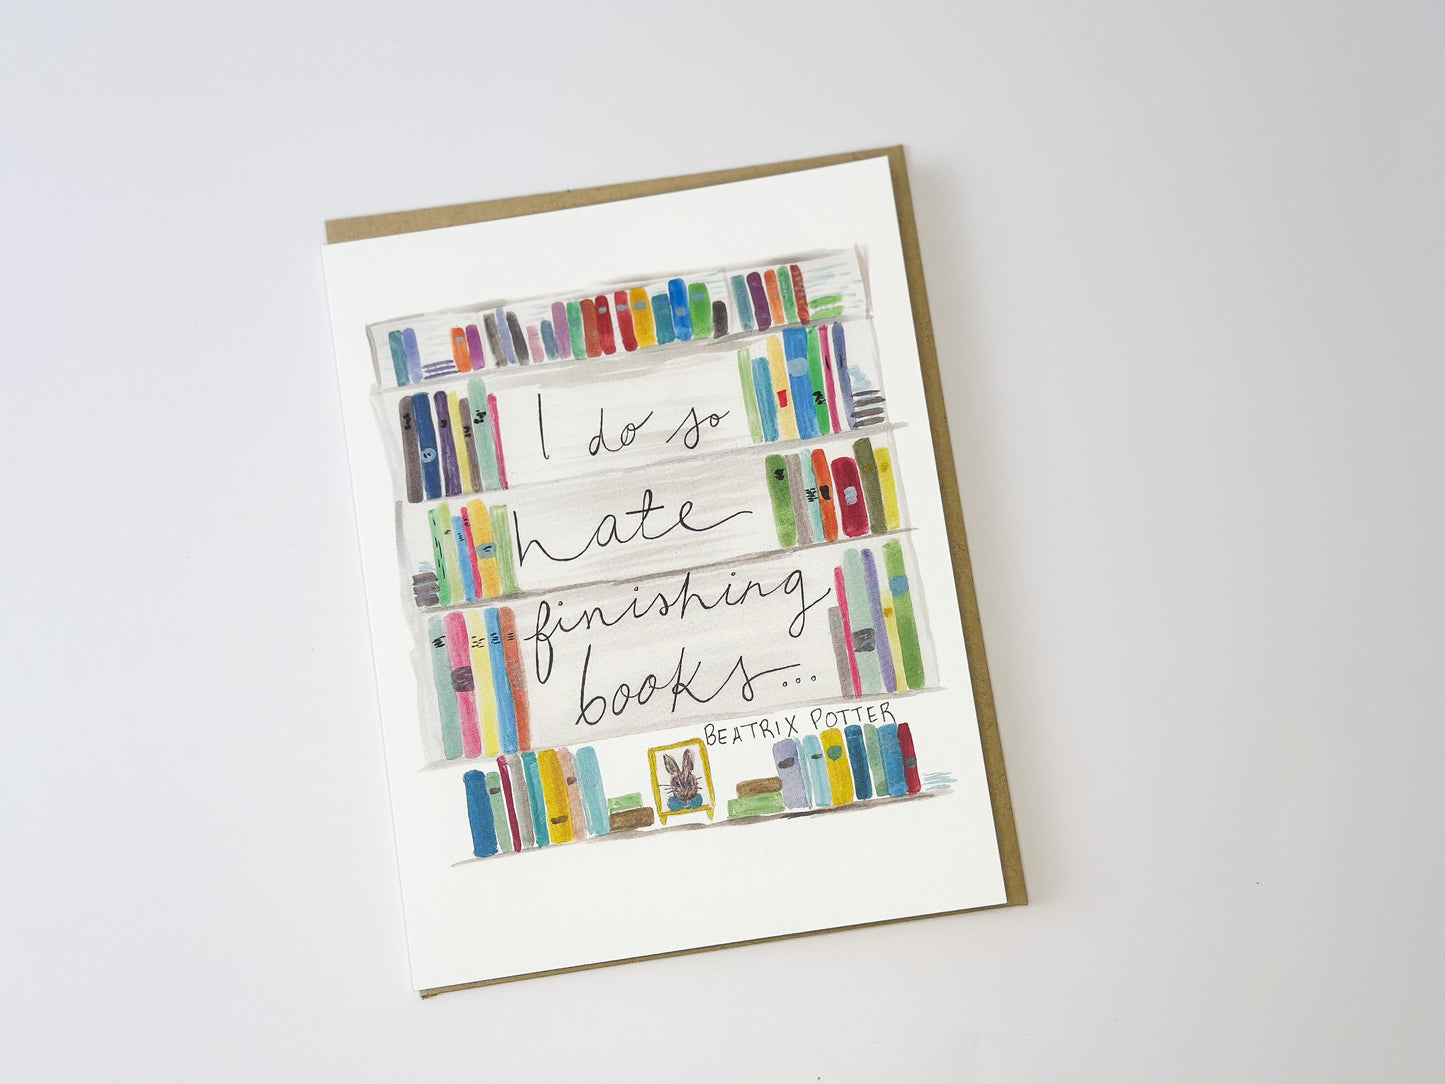 I do so
hate
finishing
books...
BEATRIX POTTER